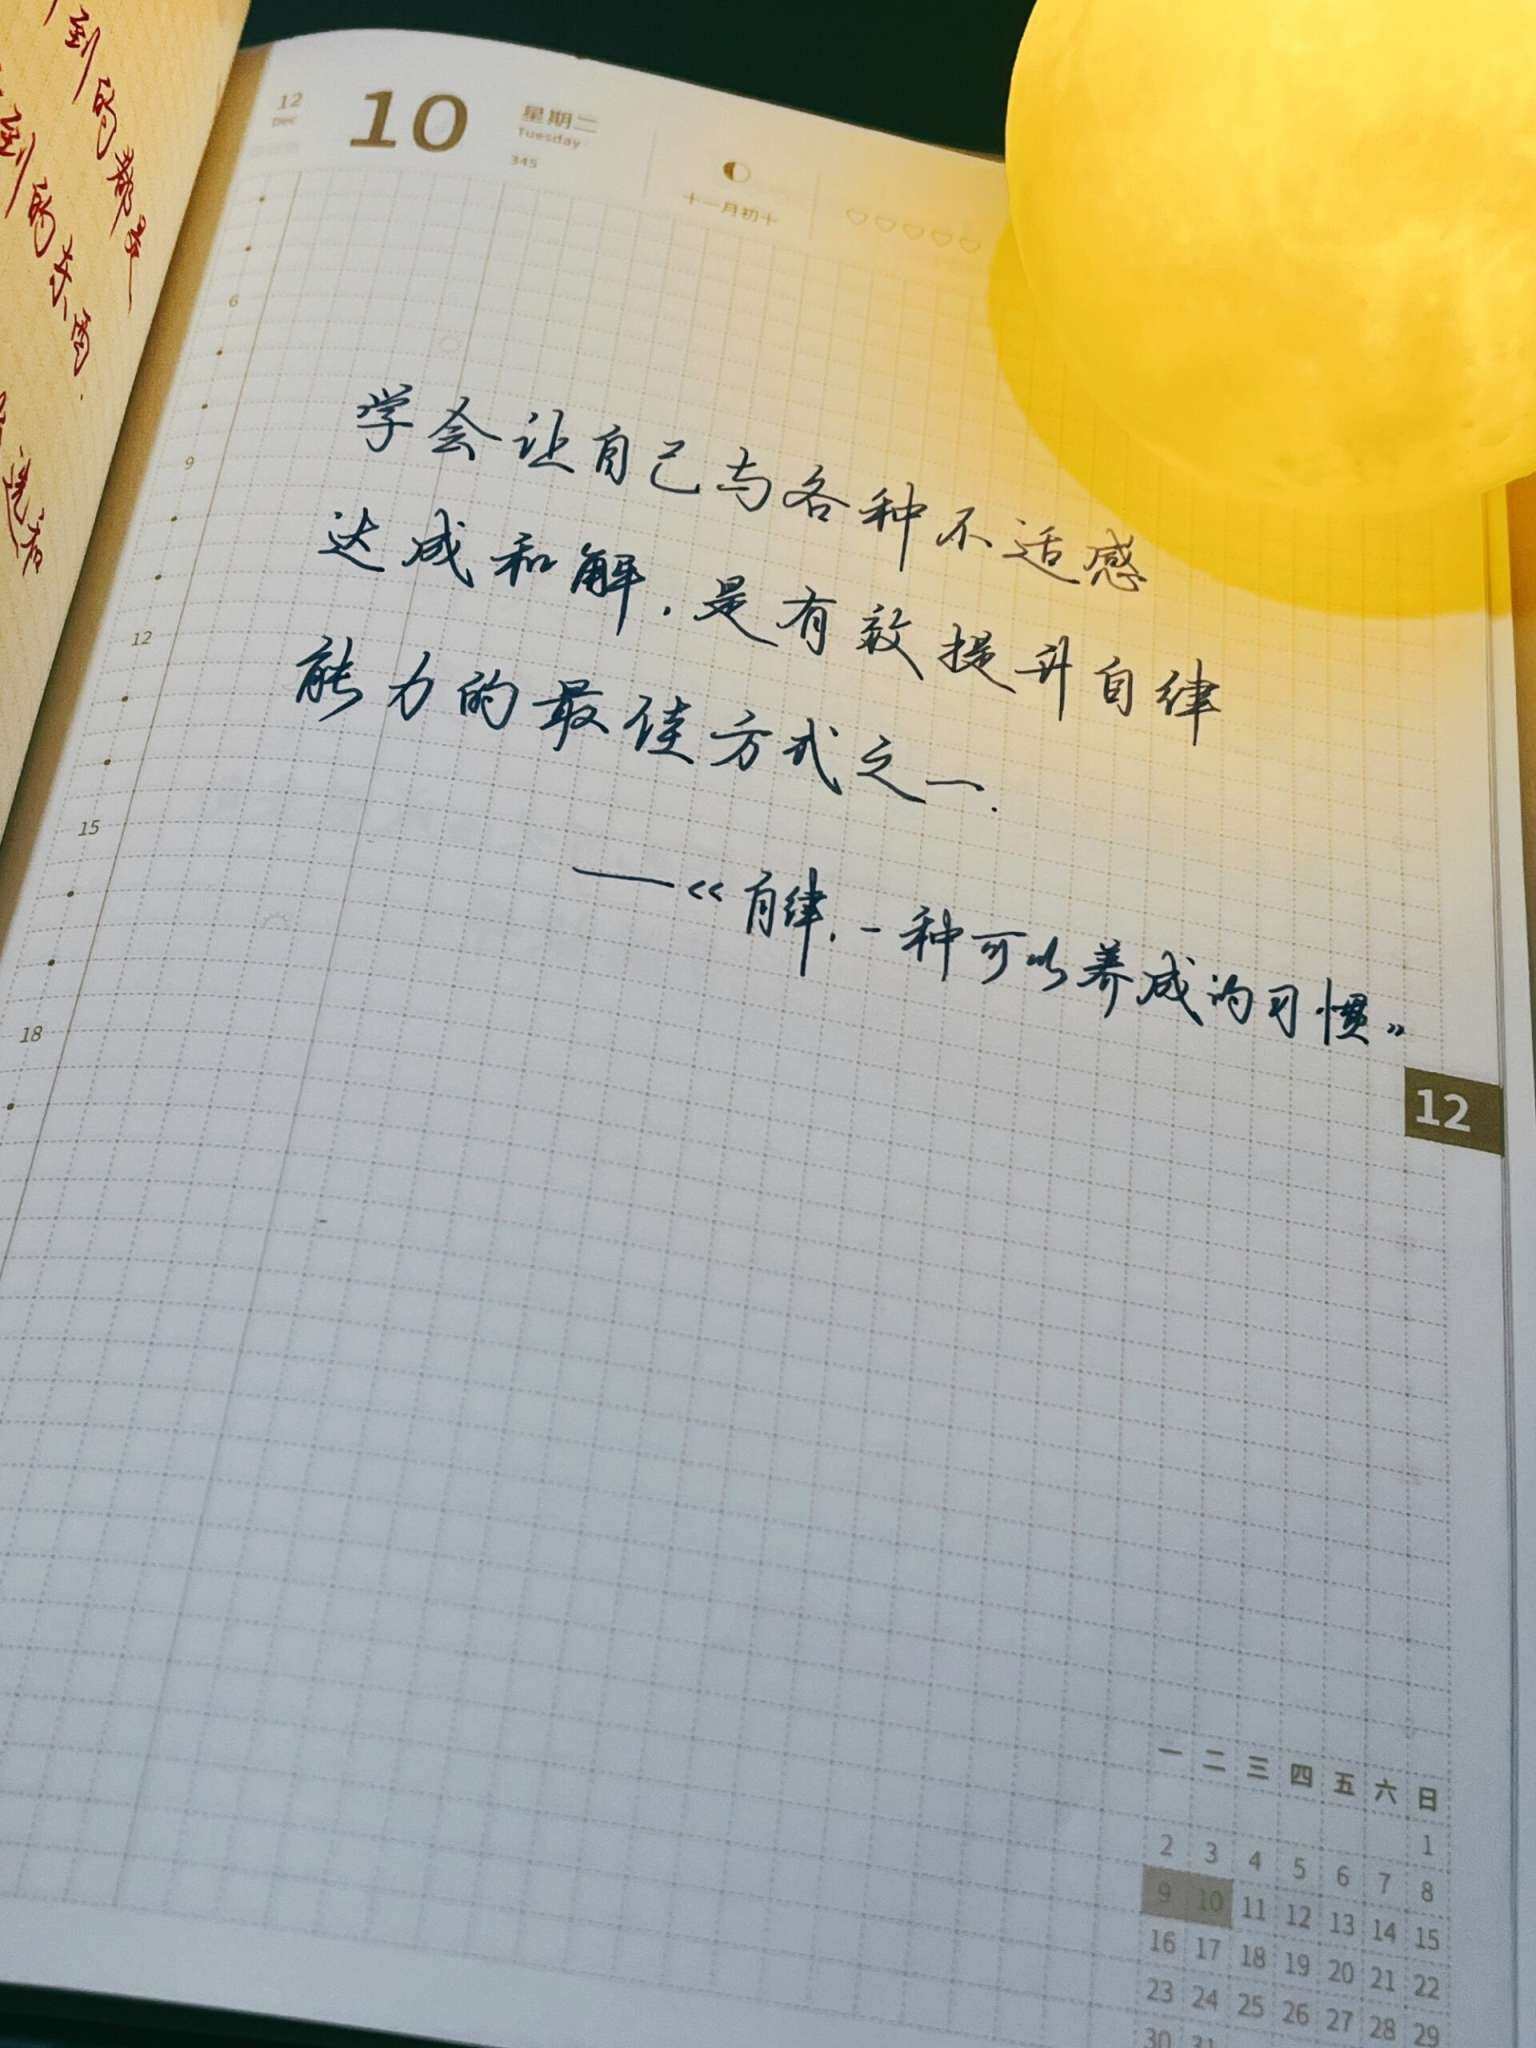 到的都是
到的东西.
选和
12
Dec
10
星期二
Tuesday
345
十一月初十
6
9
12
15
18
学会让自己与各种不适感
达成和解.是有效提升自律
能力的最佳方式之一.
——《自律.一种可以养成的习惯》
12
一 二 三 四 五 六 日
1
2 3 4 5 6 7 8
9 10 11 12 13 14 15
16 17 18 19 20 21 22
23 24 25 26 27 28 29
30 31